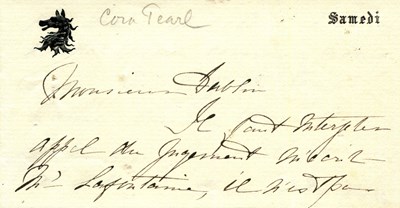 Cora Pearl
Samedi
Monsieur
Il faut
appel du jugement
Mr Lafontaine, il n'est pas